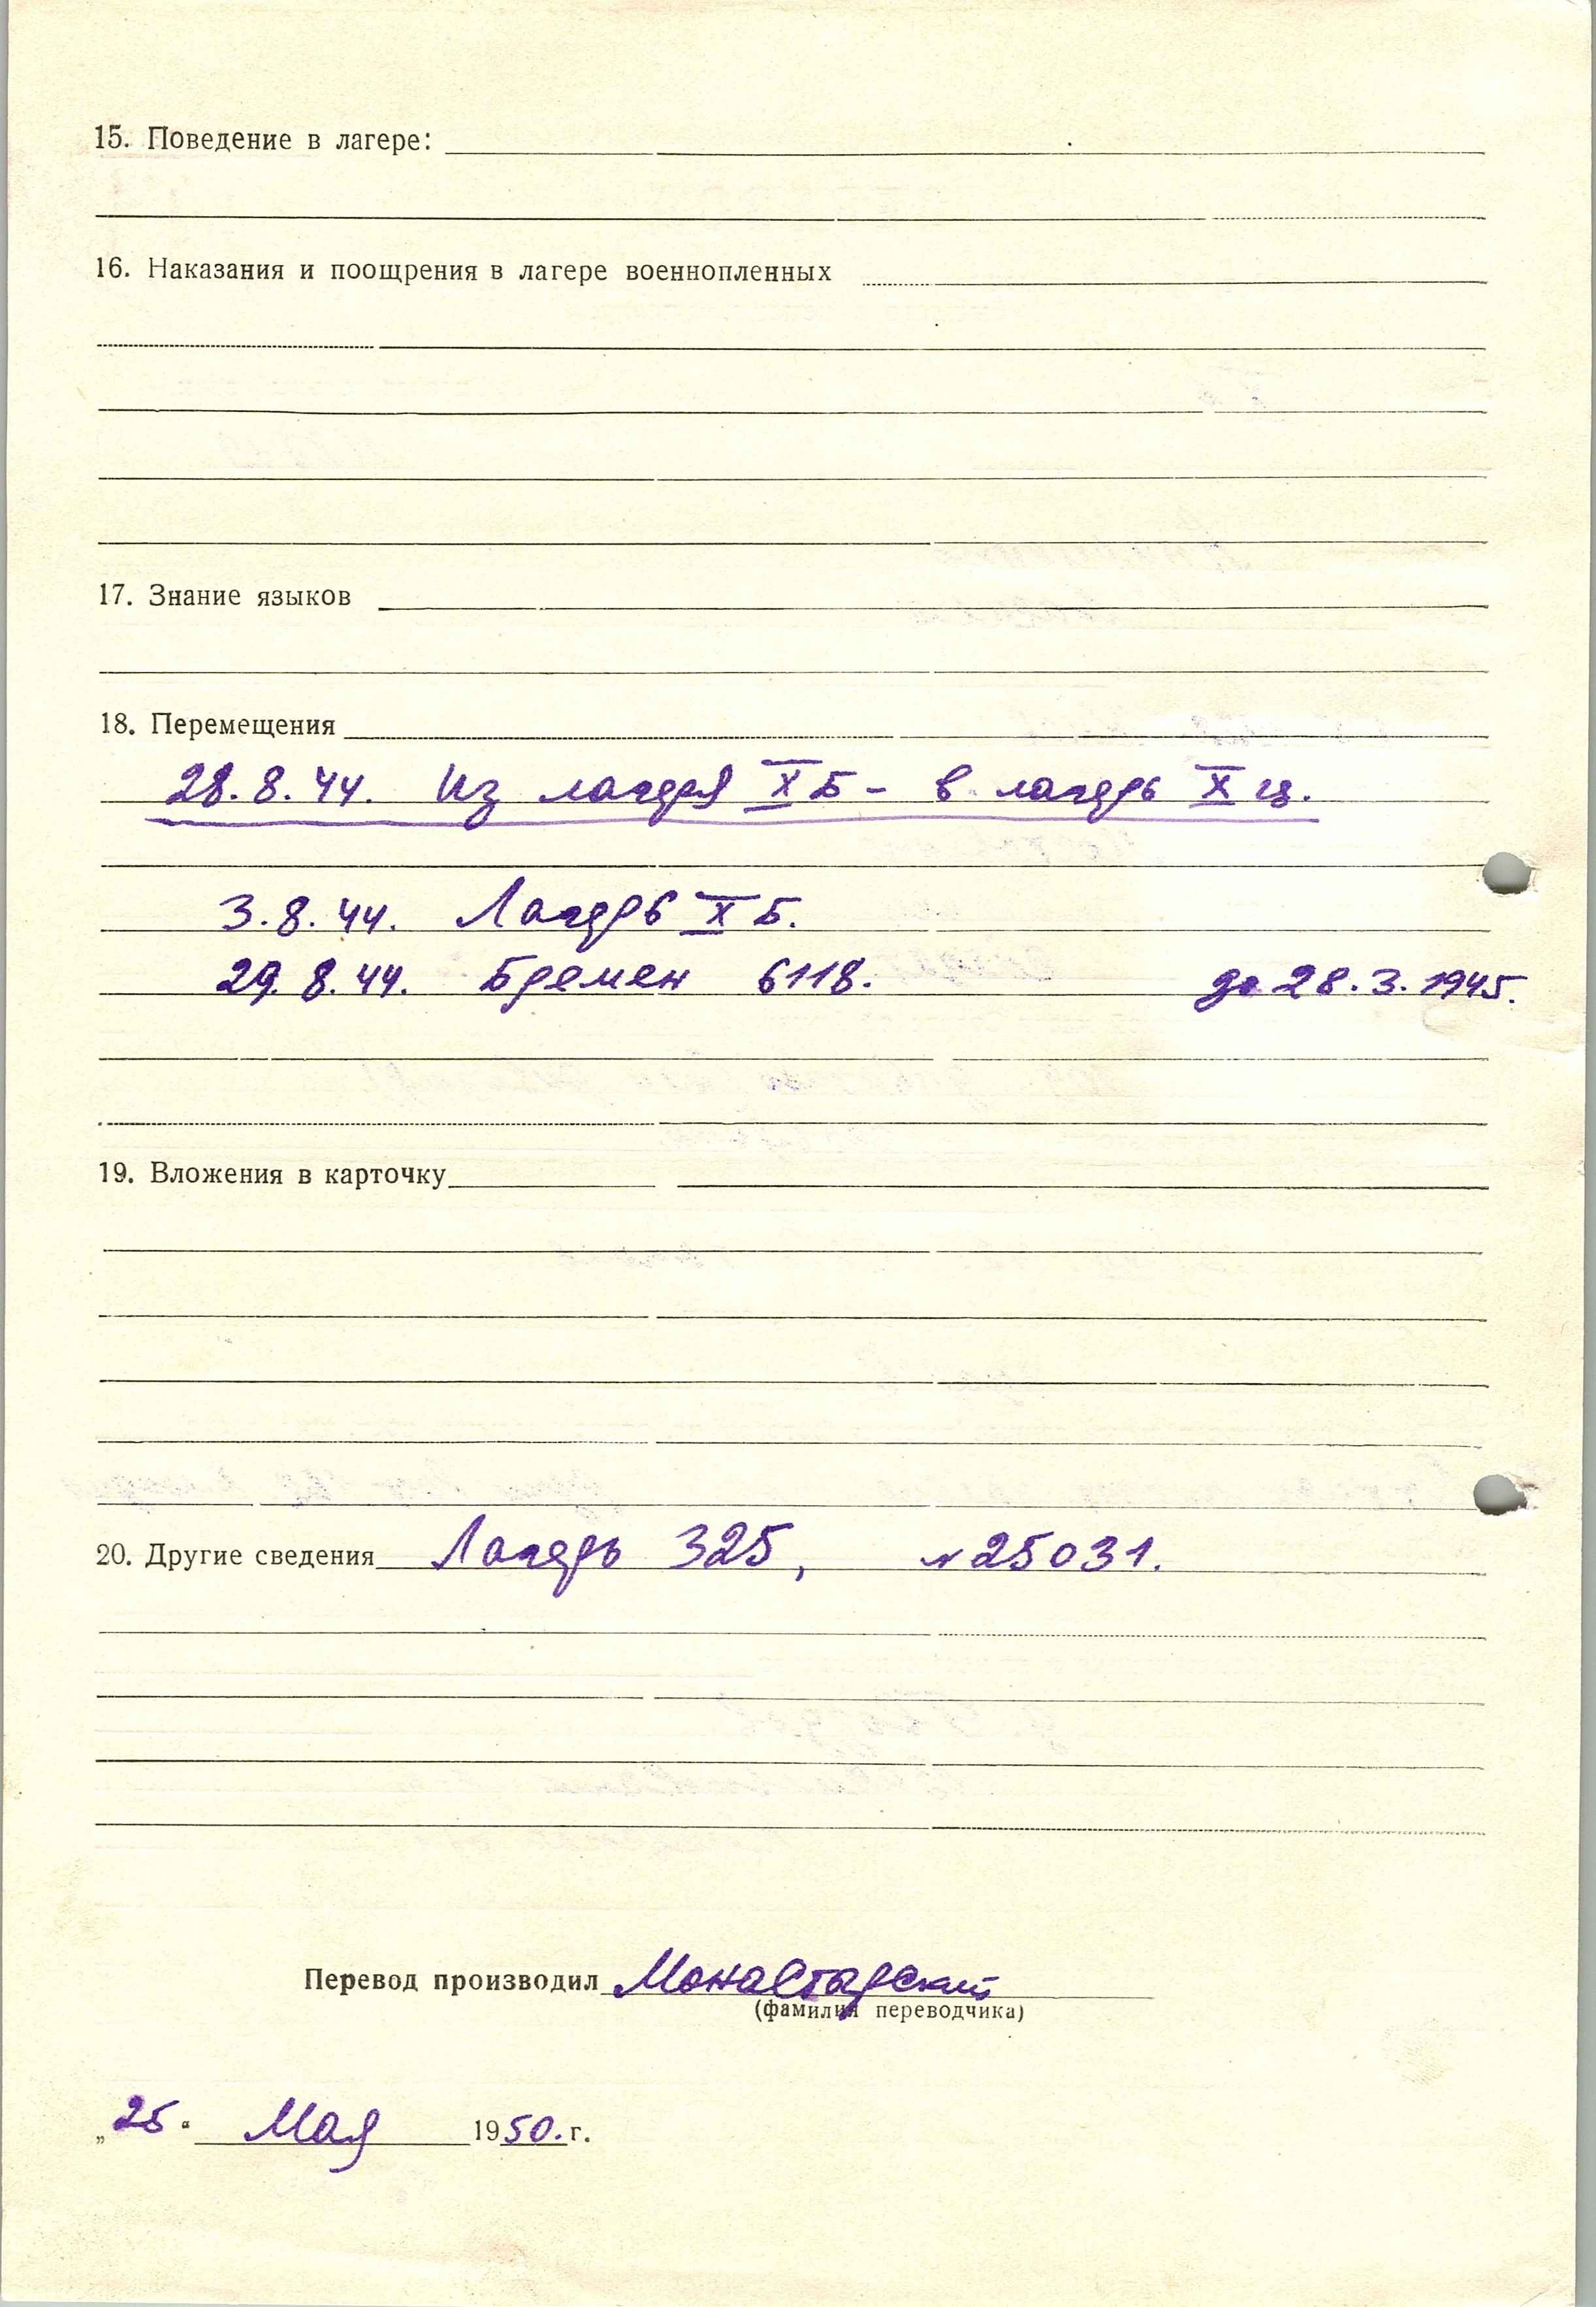 15. Поведение в лагере:
16. Наказания и поощрения в лагере военнопленных
17. Знание языков
18. Перемещения
28.8.44. Из лагеря X Б - в лагерь X ц.
3.8.44. Лагерь X Б.
29.8.44. Бремен 6118. до 28.3.1945.
19. Вложения в карточку
20. Другие сведения Лагерь 325, № 25031.
Перевод производил Монастарский
(фамилия переводчика)
„25." Мая 1950.г.